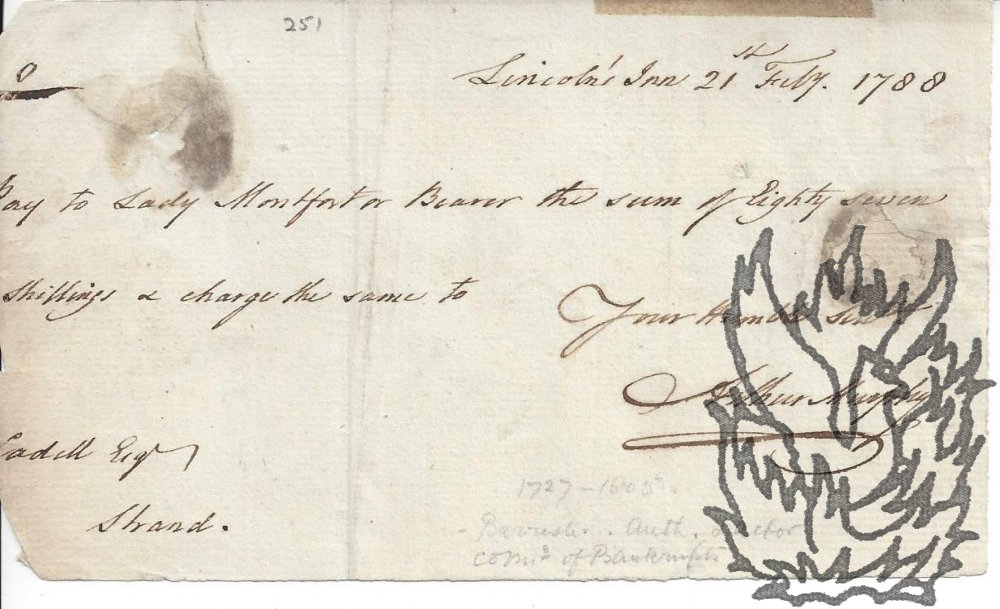 251
Lincoln's Inn 21st Feby. 1788
Pay to Lady Montfort or Bearer the sum of Eighty seven
Shillings & charge the same to
Your Humble Servt
Arthur Murphy
Cadell Esqr
Strand.
1727-1805.
Barrister. Auth. Actor
of Bankrupts